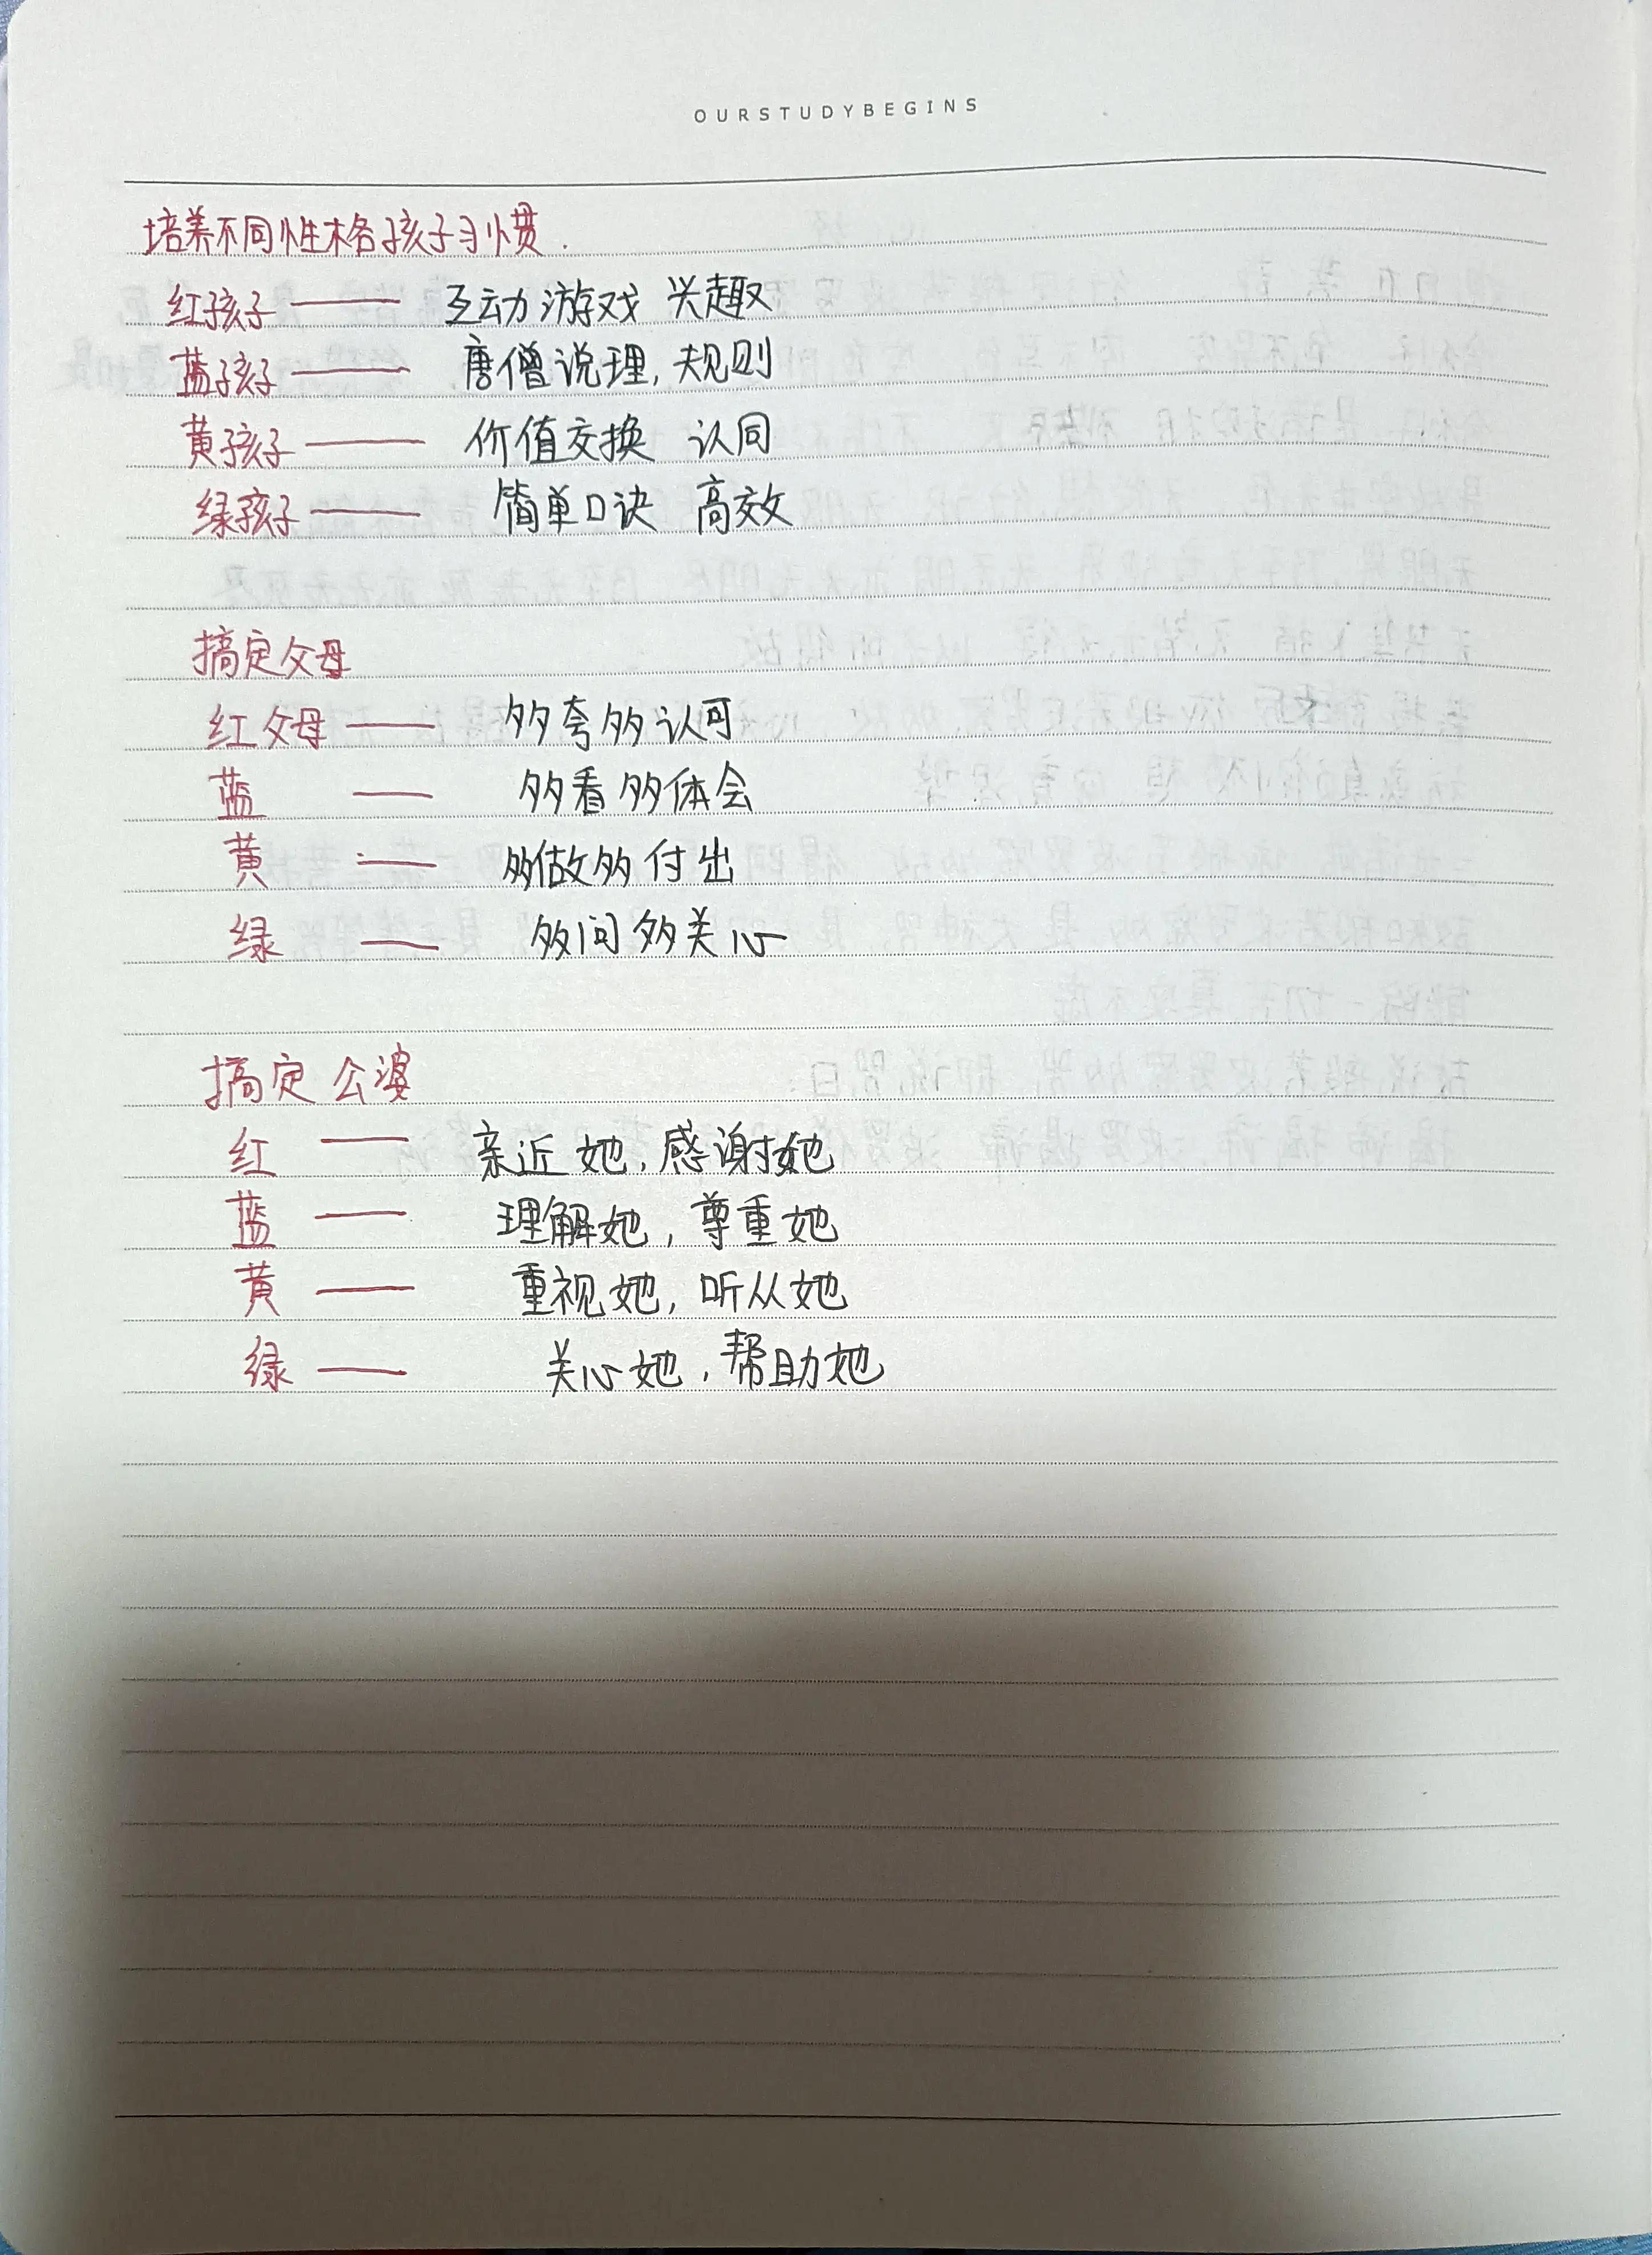 OURSTUDYBEGINS
培养不同性格孩子习惯.
红孩子 —— 互动游戏 兴趣
蓝孩子 —— 唐僧说理, 规则
黄孩子 —— 价值交换 认同
绿孩子 —— 简单口诀 高效
搞定父母
红父母 —— 多夸多认可
蓝 —— 多看多体会
黄 —— 多做多付出
绿 —— 多问多关心
搞定公婆
红 —— 亲近她, 感谢她
蓝 —— 理解她, 尊重她
黄 —— 重视她, 听从她
绿 —— 关心她, 帮助她